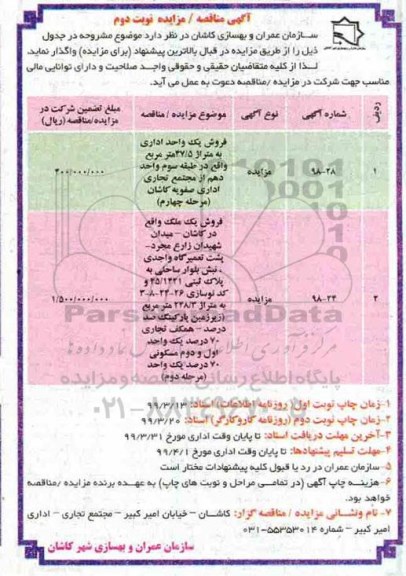 آگهی مناقصه / مزایده نوبت دوم
سازمان عمران و بهسازی کاشان در نظر دارد موضوع مشروحه در جدول
ذیل را از طریق مزایده در قبال بالاترین پیشنهاد (برای مزایده) واگذار نماید.
لذا از کلیه متقاضیان حقیقی و حقوقی واجد صلاحیت و دارای توانایی مالی
مناسب جهت شرکت در مزایده /مناقصه دعوت به عمل می آید.
ردیف
شماره آگهی
نوع آگهی
موضوع مزایده / مناقصه
مبلغ تضمین شرکت در
مزایده/مناقصه (ریال)
۱
۹۸-۲۸
مزایده
فروش یک واحد اداری
به متراژ ۴۷/۵متر مربع
واقع در طبقه سوم واحد
دهم از مجتمع تجاری
اداری صفویه کاشان
(مرحله چهارم)
۴۰۰/۰۰۰/۰۰۰
۲
۹۸-۲۴
مزایده
فروش یک ملک واقع
در کاشان - میدان
شهیدان زارع مجرد-
پشت تعمیرگاه واحدی
، نبش بلوار ساحلی به
پلاک ثبتی ۴۵/۱۴۲۱ و
کد نوسازی ۲۶-۲۴-۸-۳
به متراژ ۲۴۸/۳ متر مربع
(زیرزمین پارکینگ صد
درصد - همکف تجاری
۷۰ درصد یک واحد
اول و دوم مسکونی
۷۰ درصد یک واحد
(مرحله دوم)
۱/۵۰۰/۰۰۰/۰۰۰
ParsNamadData
پایگاه اطلاع رسانی مناقصه و مزایده
۱-زمان چاپ نوبت اول (روزنامه اطلاعات) اسناد: ۹۹/۳/۱۳
۲-زمان چاپ نوبت دوم (روزنامه کاروکارگر) اسناد: ۹۹/۳/۲۰
۳-آخرین مهلت دریافت اسناد: تا پایان وقت اداری مورخ ۹۹/۳/۳۱
۴-مهلت تسلیم پیشنهادها: تا پایان وقت اداری مورخ ۹۹/۴/۱
۵- سازمان عمران در رد یا قبول کلیه پیشنهادات مختار است
۶-هزینه چاپ آگهی (در تمامی مراحل و نوبت های چاپ) به عهده برنده مزایده /مناقصه
خواهد بود.
۷- نام ونشانی مزایده / مناقصه گزار: کاشان - خیابان امیر کبیر - مجتمع تجاری - اداری
امیر کبیر - شماره ۵۵۳۵۳۰۱۴-۰۳۱
سازمان عمران و بهسازی شهر کاشان